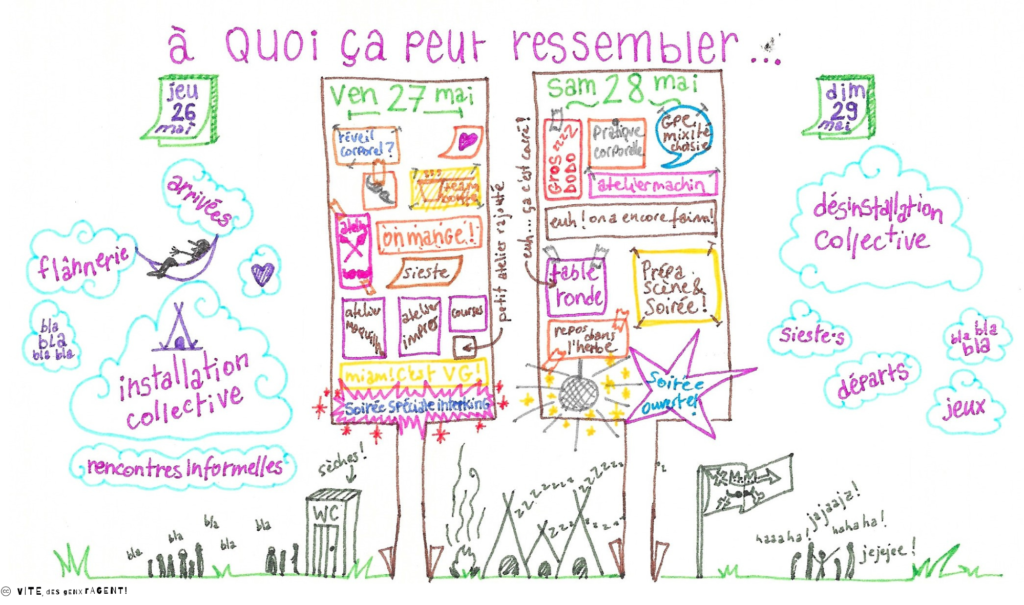 à QUOI ça peut ressembler...
jeu
26
mai
arrivées
flânnerie
bla
bLa
bla bla
installation
collective
rencontres informelles
ven 27 mai
réveil
corporel ?
on mange !
sieste
atelier
atelier
impres
courses
miam! c'est VG !
Soirée spéciale interking
petit atelier rajouté
euh... ça c'est carré !
Sam 28 mai
GROS zzZZ
DODO
pratique
corporelle
GPE,
mixité
choisie
atelier machin
euh ! on a encore faim !
table
ronde
Prépa
scène &
Soirée !
repos dans
l'herbe
Soirée
ouverte !
dim
29
mai
désinstallation
collective
siestes
bla bla
bla
départs
jeux
bla
bla
bla
bla
sèches !
WC
zzzzzzz
zzzz
zzzzz
haaaha !
jajaaja !
hahaha !
jejejee !
cc VITE, des genx r'AGENT!